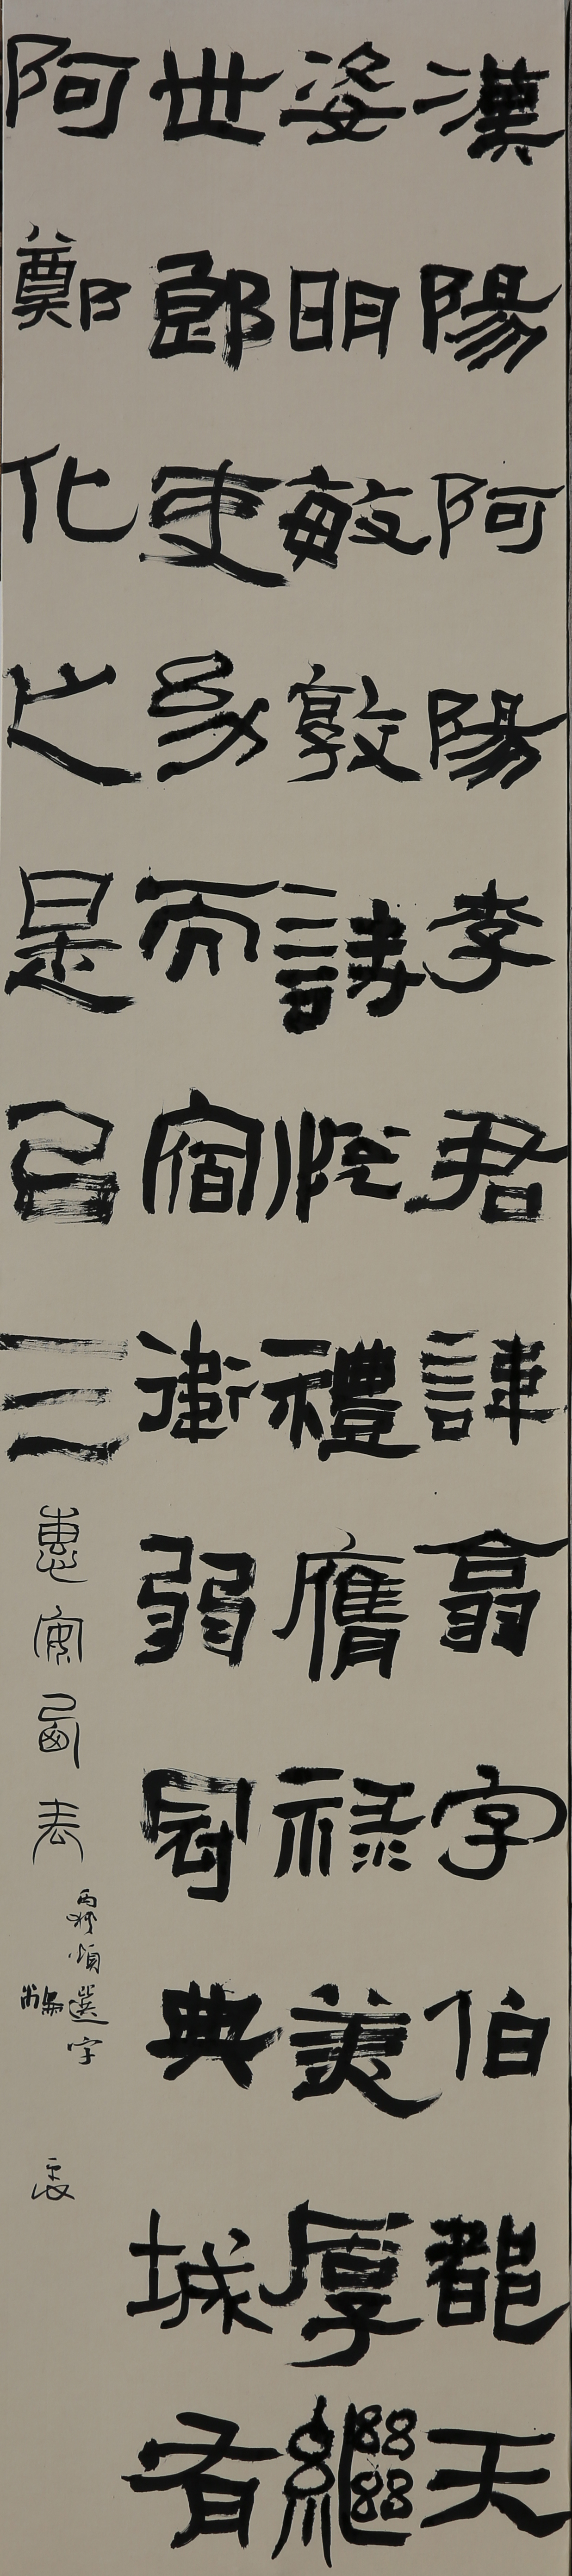 漢陽阿陽李君諱翕字伯都天
姿明敏敦詩悅禮膺祿美厚繼
世郎吏幼而宿衛弱冠典城有
阿鄭化之是以三
惠安西表
西狹頌選字